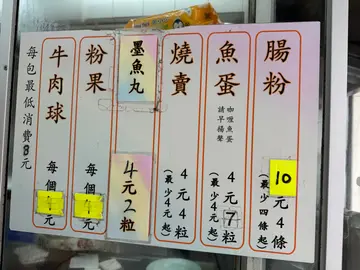 腸粉
10元4條
(最少四條起)
魚蛋
咖喱魚蛋
請早揚聲
4元7粒
(最少4元起)
燒賣
4元4粒
(最少4元起)
墨魚丸
4元2粒
粉果
每個
元
牛肉球
每個
元
每包最低消費8元